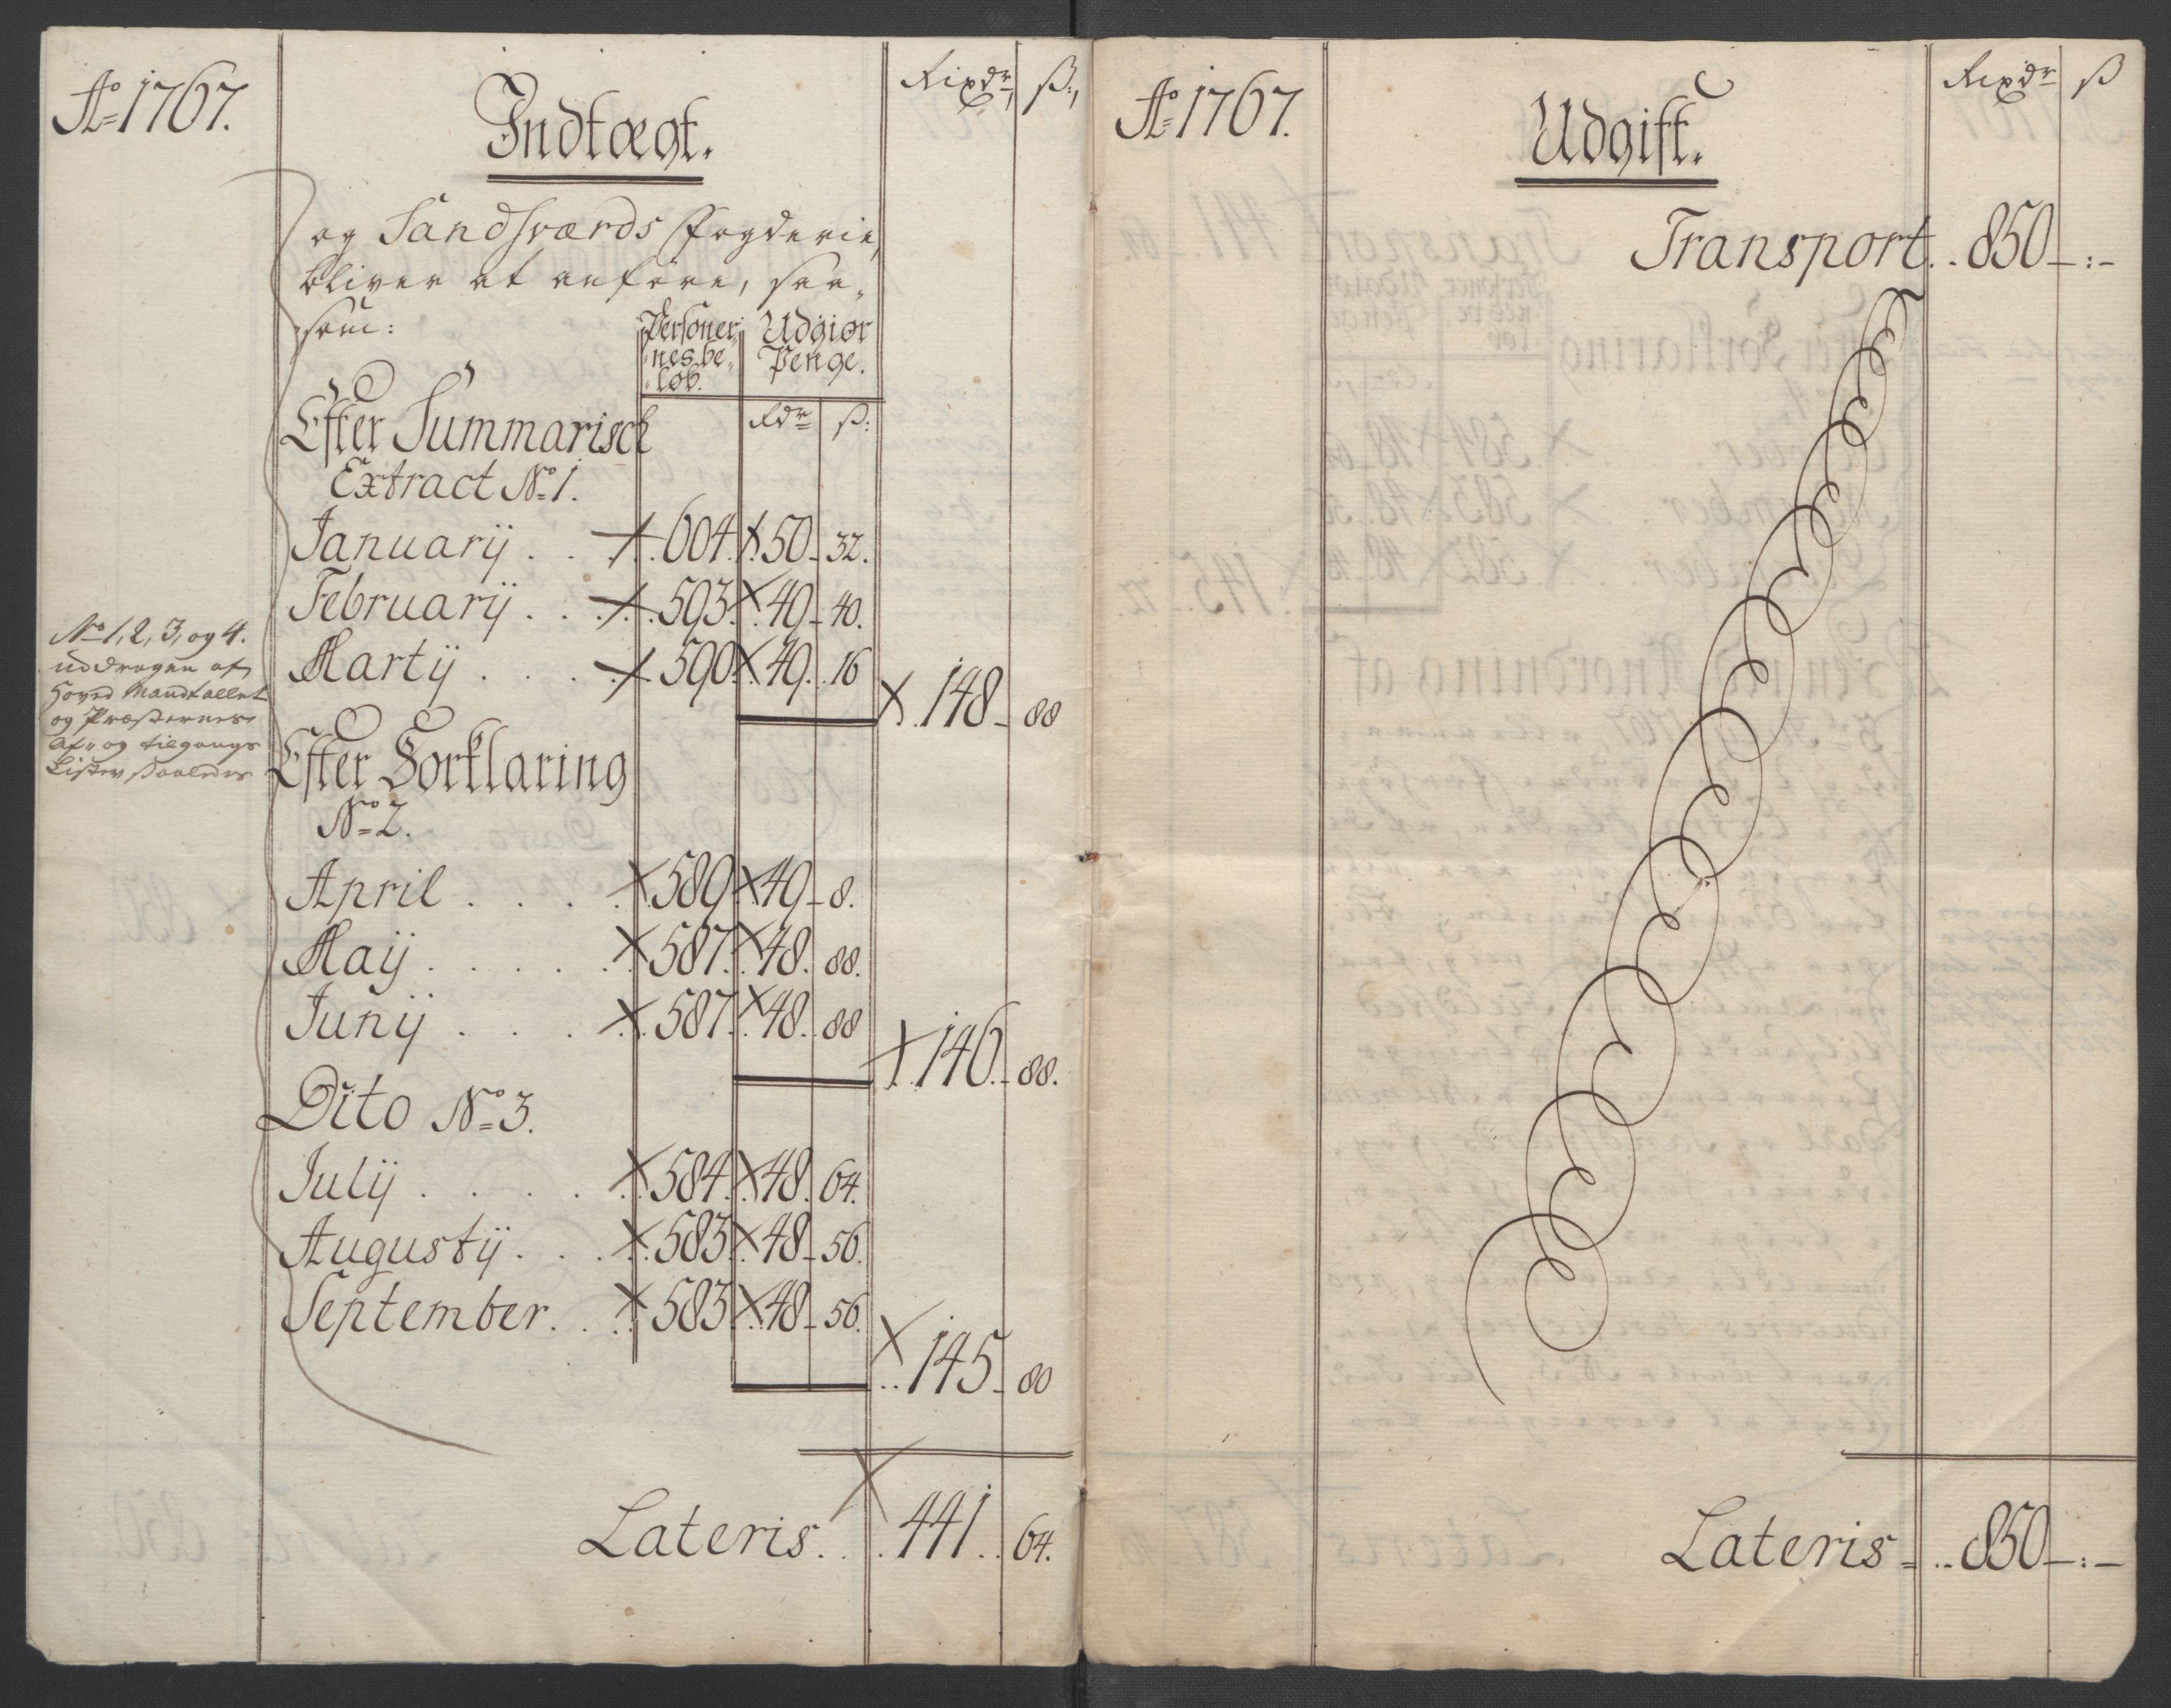 Ao 1767.
Indtægt.
Rixdr, ß:,
og Sandsværds Fogderie,
bliver at anføre, saa-
som:
Personer- Udgiør
nes be- Penge.
løb.
Rdr ß:
Efter Summarisch
Extract No 1.
Januarij . . 604. 50 - 32.
Februarij . . 593. 49 - 40.
Martij . . . 590. 49. 16
148 - 88
No 1, 2, 3, og 4.
uddragen af
Hoved Mandtallet
og Præsternes
Af- og tilgangs
Lister saaledes
Efter Forklaring
No 2.
April . . . . 589. 49 - 8.
Maij . . . . . 587. 48. 88.
Junij . . . 587. 48. 88
146. - 88.
Dito No 3.
Julij . . . . 584. 48. 64.
Augustij . . . 583. 48 - 56.
September . . 583. 48 - 56.
145 - 80
Lateris . . . 441 . . 64.
Ao 1767.
Udgift.
Rixdr ß
Transport. . 850 - : -
Lateris - . . 850 - : -